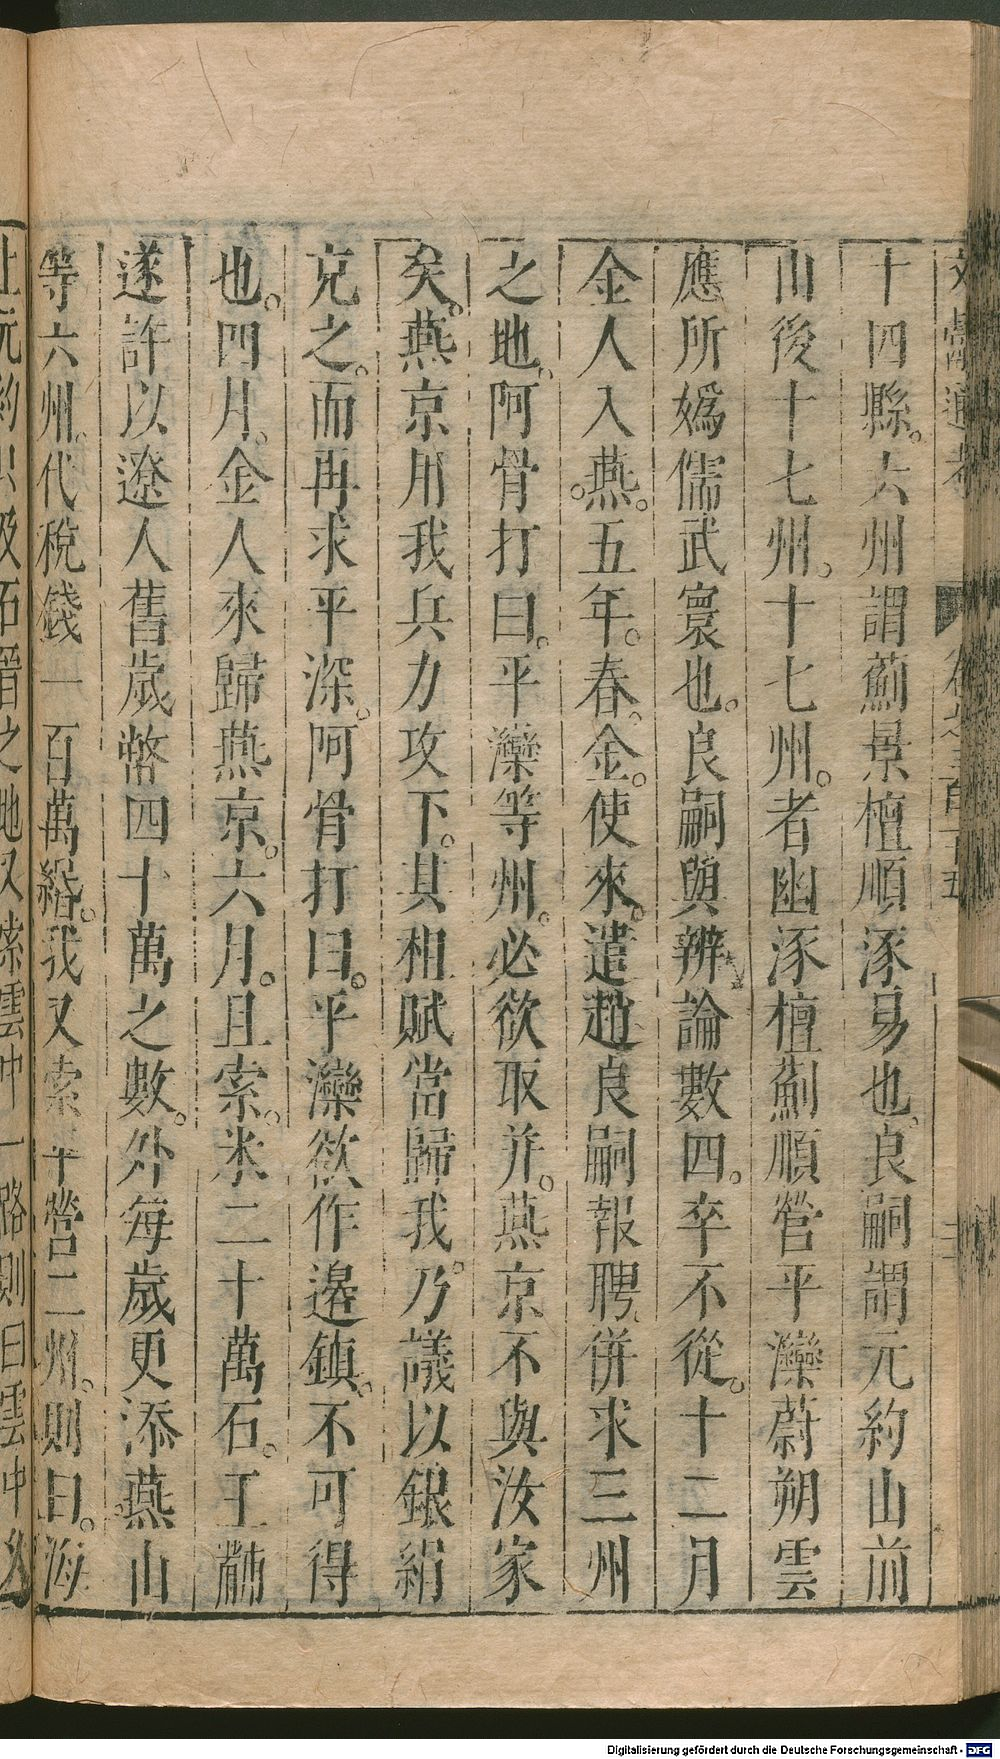 文獻通考 卷之三百十五
十四縣六州謂薊景檀順涿易也良嗣謂元約山前
山後十七州十七州者幽涿檀薊順營平灤蔚朔雲
應所媯儒武寰也良嗣與辨論數四卒不從十二月
金人入燕五年春金使來遣趙良嗣報聘併求三州
之地阿骨打曰平灤等州必欲取并燕京不與汝家
矣燕京用我兵力攻下其相賦當歸我乃議以銀絹
克之而再求平深阿骨打曰平灤欲作邉鎮不可得
也四月金人來歸燕京六月且索米二十萬石王黼
遂許以遼人舊歲幣四十萬之數外每歲更添燕山
等六州代稅錢一百萬緡我又索平營二州則曰海
上元約只及石晋之地又索雲中一路則曰雲中久
Digitalisierung gefördert durch die Deutsche Forschungsgemeinschaft - DFG